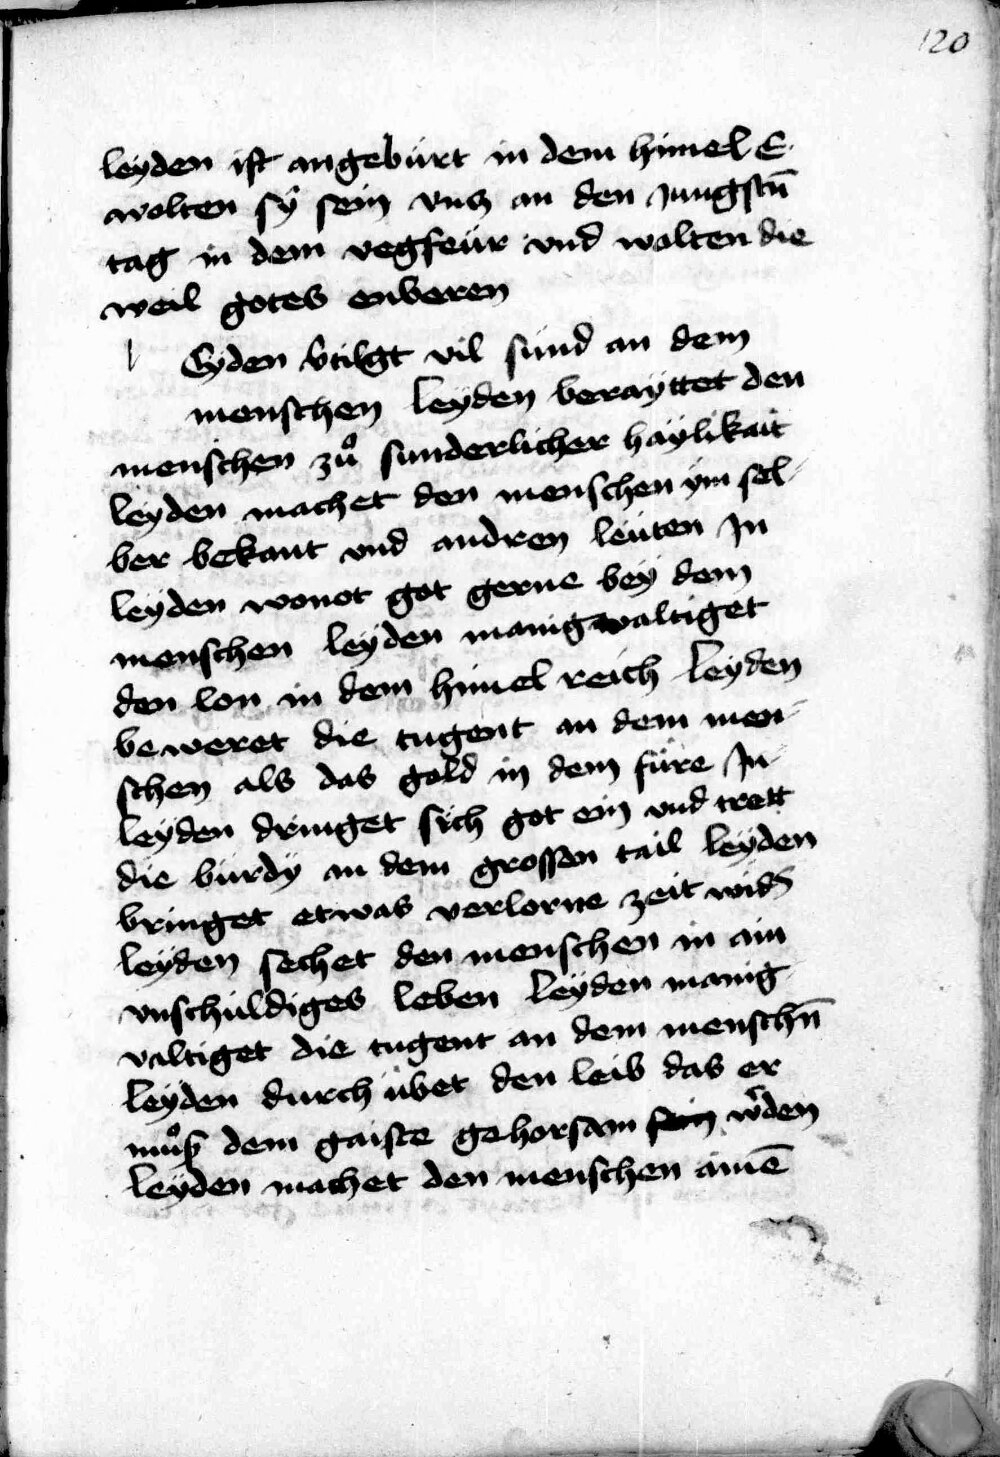 120
leyden ist angebürt in dem himel E
wolten sÿ sein vncz an den Jungstn̄
tag in dem vegfeür vnd wolten die
weil gotes enberen
l Eyden v̄tilgt vil sünd an dem
menschen leyden berayttet den
menschen zuͦ sunderlicher haÿlikait
leÿden machet den menschen ÿm sel-
ber bekant vnd andren leüten Jn
leÿden wonet got gerne beÿ dem
menschen leÿden manigualtiget
den lon in dem himel reich leÿden
beweret die tugent an dem men-
schen als das gold in dem füre Jn
leÿden dringet sich got ein vnd trett
die bürdÿ an dem grossen tail leÿden
bringet etwas verlorne zeit wid̄
leÿden seczet den menschen in ain
vnschuldiges leben leÿden manig
valtiget die tugent an dem menschn̄
leÿden durch übet den leib das er
muͦß dem gaiste gehorsam sein w̄den
leÿden machet den menschen amē